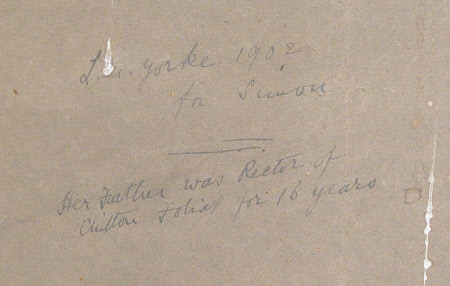 L.M. Yorke 1902
for Simon
Her Father was Rector of
Chilton Foliat for 16 years